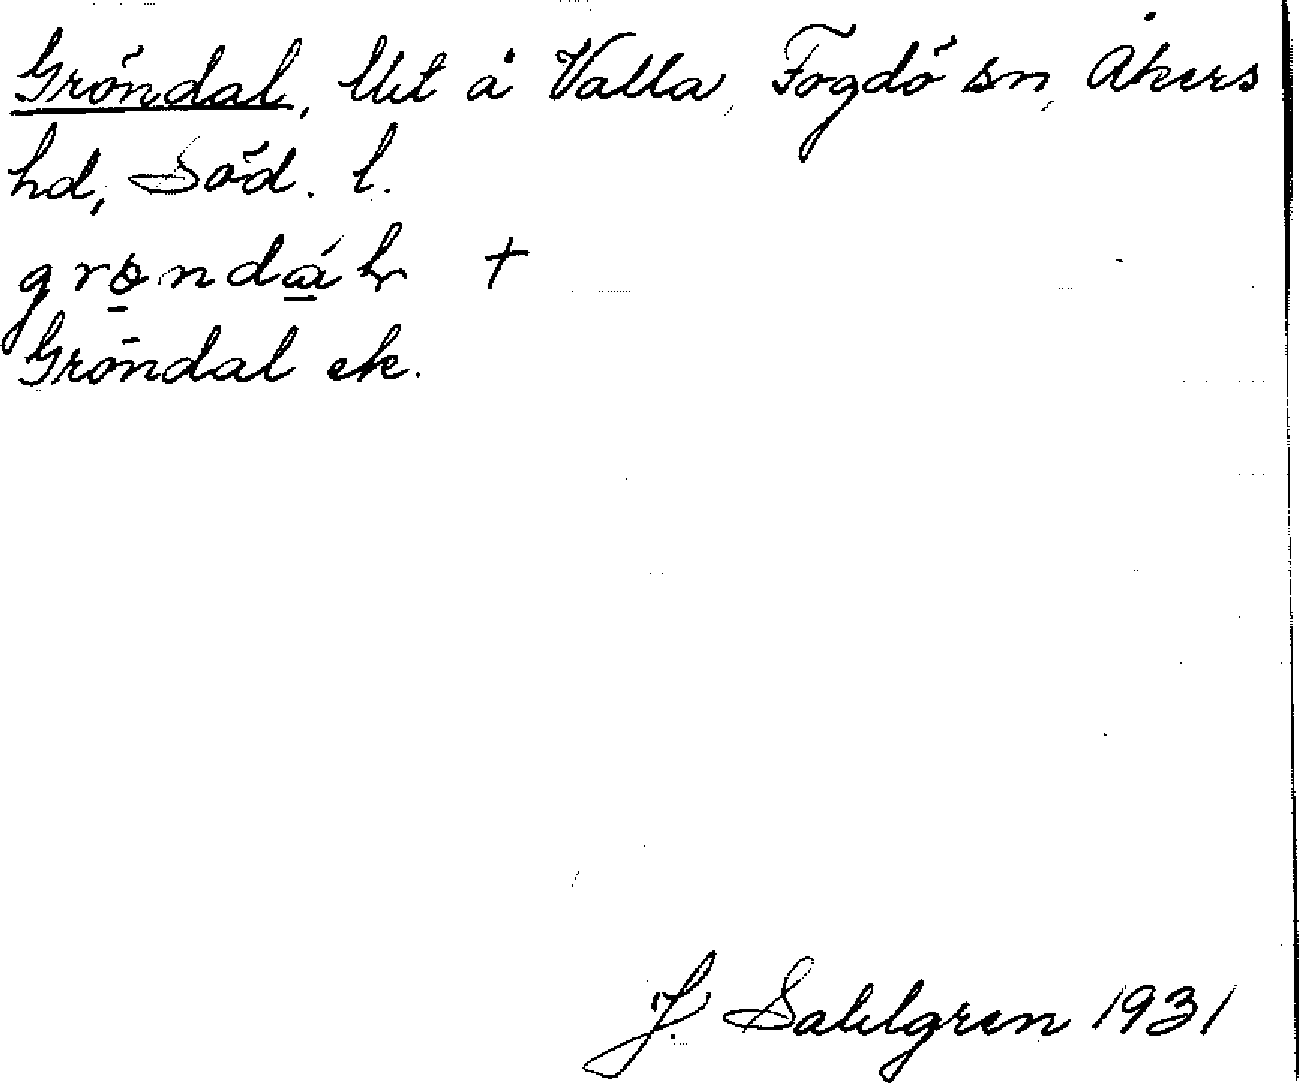 Gröndal, Utt å Valla, Fogdö sn, Åkers
hd, Söd. l.
+
Gröndal ek.
J. Sahlgren 1931